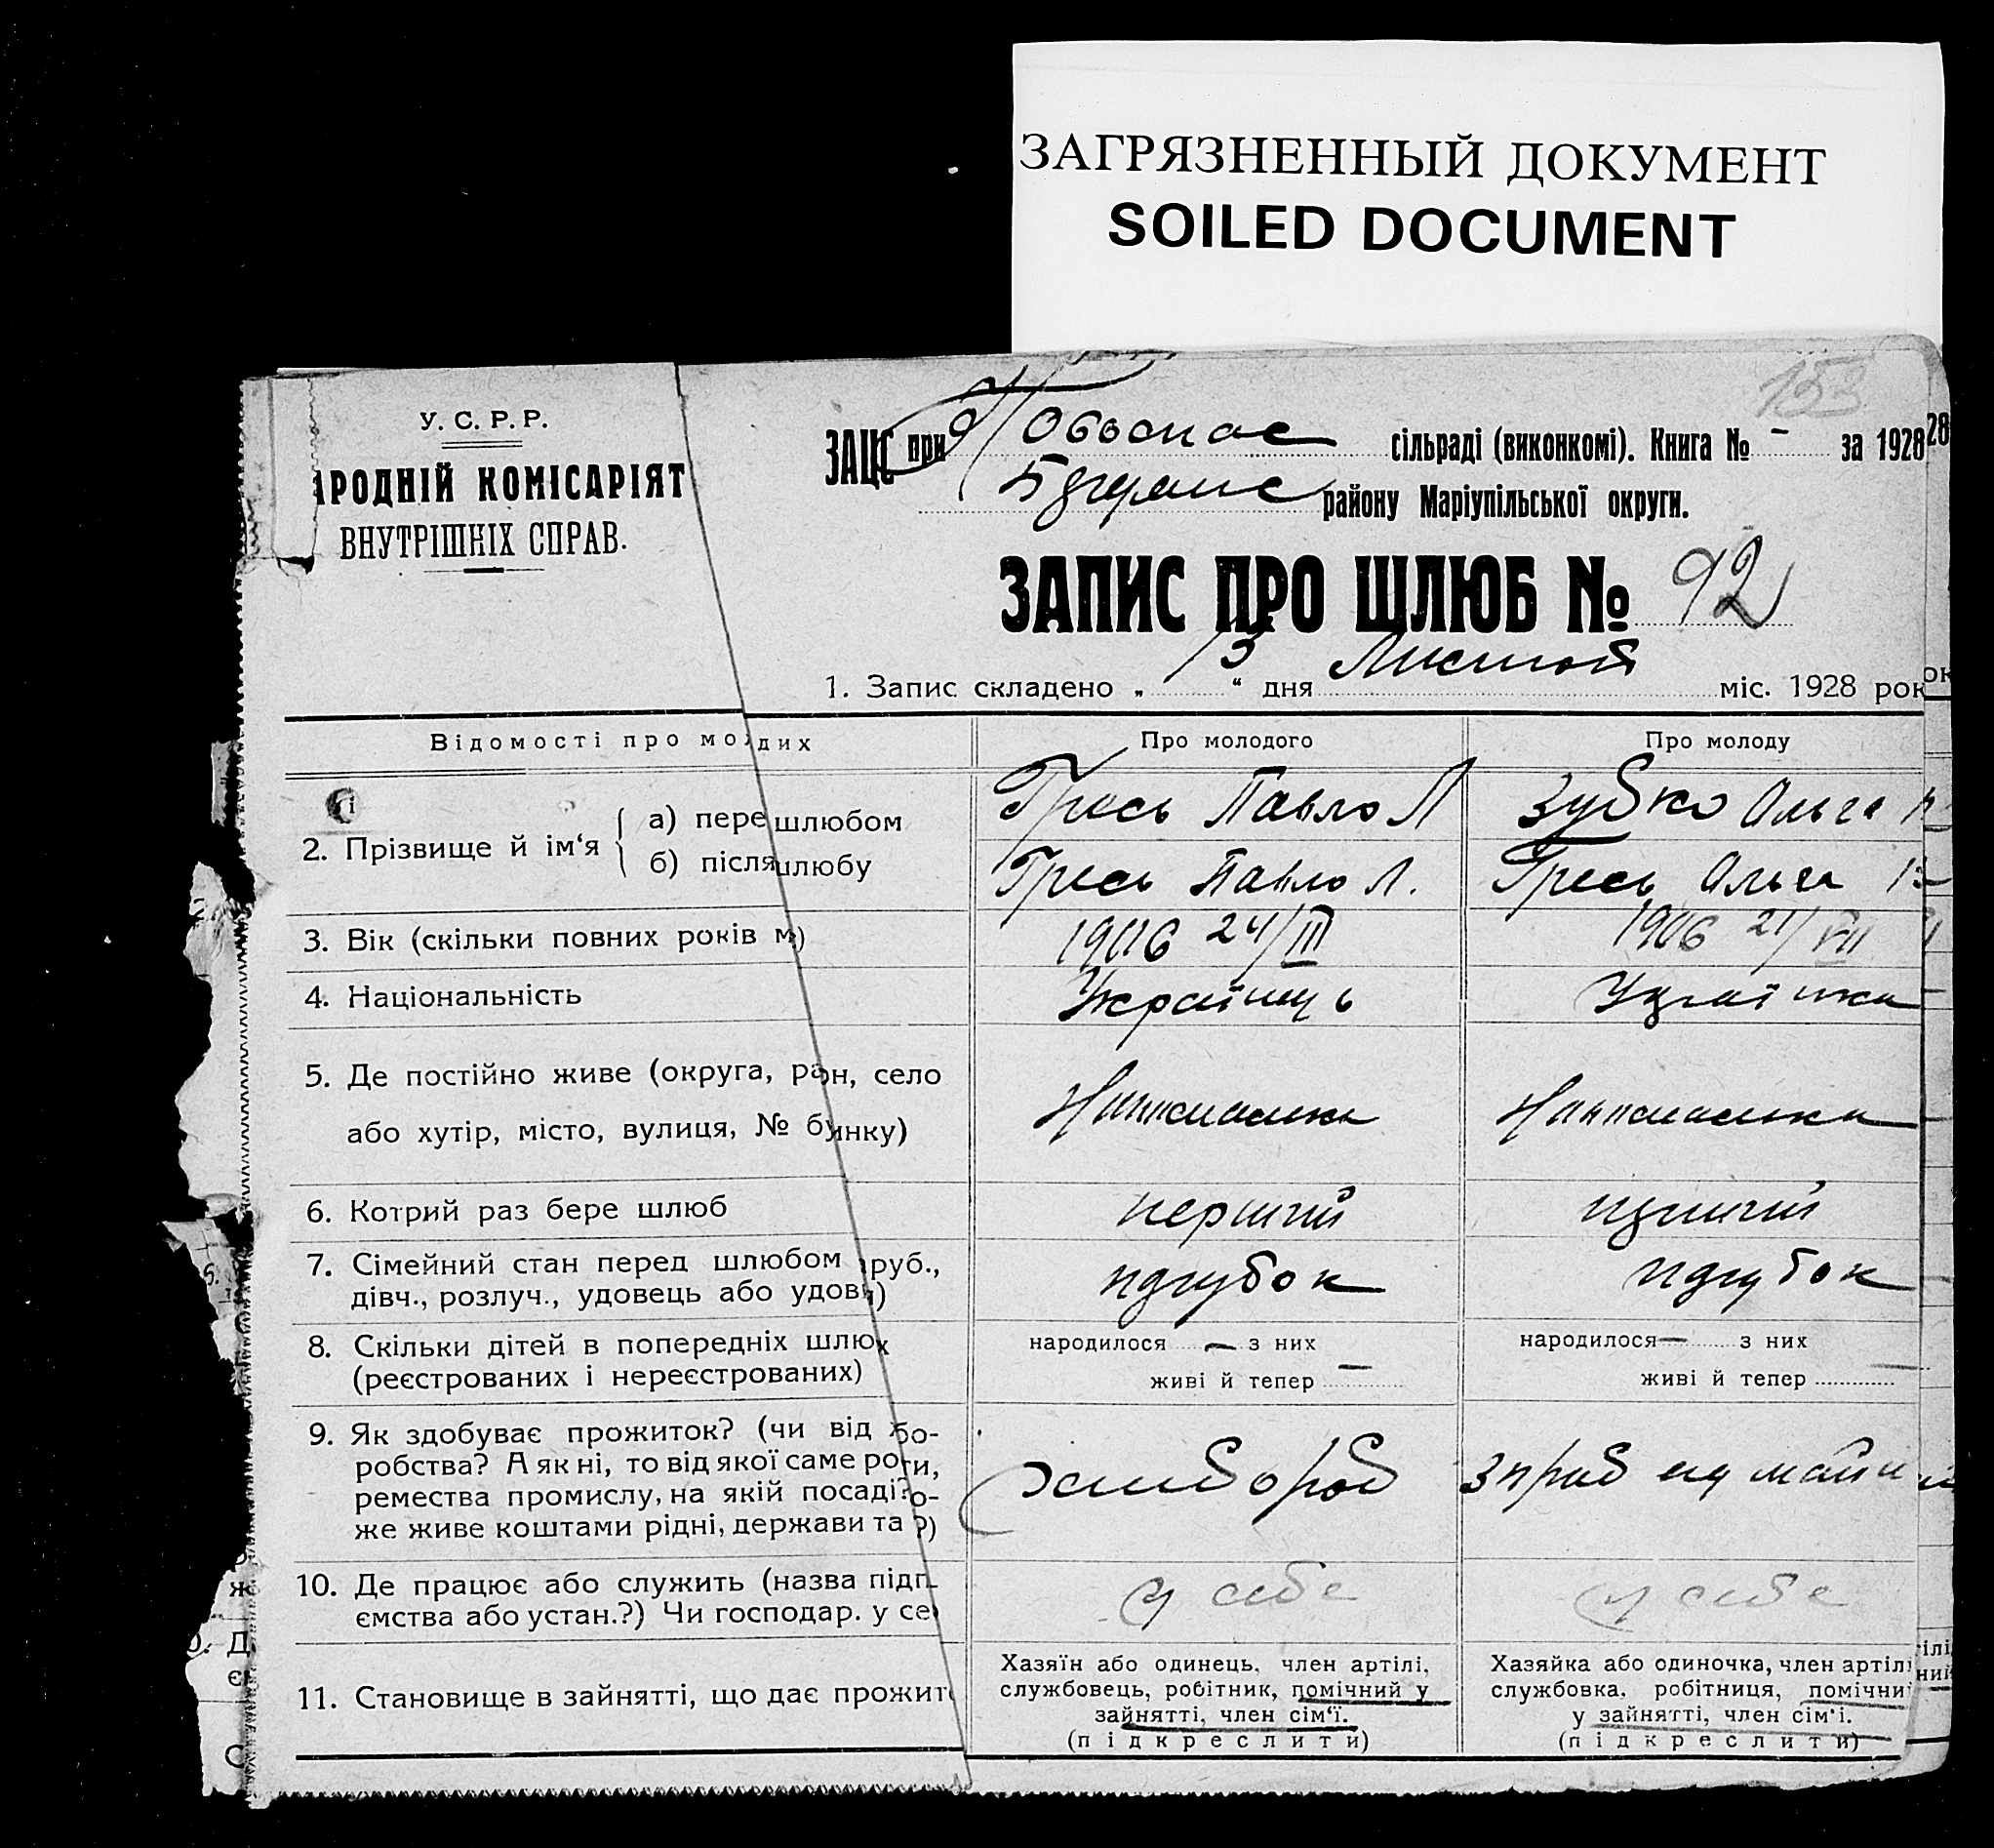 ЗАГРЯЗНЕННЫЙ ДОКУМЕНТ
SOILED DOCUMENT
153
У. С. Р. Р.
АРОДНІЙ КОМІСАРІЯТ
ВНУТРІШНІХ СПРАВ.
ЗАЦС при сільраді (виконкомі). Книга № - за 1928
району Маріупільської округи.
ЗАПИС ПРО ШЛЮБ № 92
1. Запис складено „ 13 “ дня Листоп міс. 1928 рок
Відомості про мо дих
Про молодого
Про молоду
2. Прізвище й ім‘я
а) пере шлюбом
Гресь Павло Л
Зубко Ольга
б) після шлюбу
Гресь Павло Л.
Гресь Ольга
3. Вік (скільки повних років м )
1906 24/III
1906 21/VII
4. Національність
Українць
Українка
5. Де постійно живе (округа, ра н, село
або хутір, місто, вулиця, № бу инку)
6. Котрий раз бере шлюб
перший
перший
7. Сімейний стан перед шлюбом аруб.,
дівч., розлуч., удовець або удов )
парубок
парубок
8. Скільки дітей в попередніх шлю х
(реєстрованих і нереєстрованих)
народилося — з них
живі й тепер —
народилося — з них
живі й тепер —
9. Як здобуває прожиток? (чи від бо-
робства? А як ні, то від якої саме ро ти,
ремества промислу, на якій посаді? о-
же живе коштами рідні, держави та ?)
хлибороб
10. Де працює або служить (назва підп
ємства або устан.?) Чи господар. у се
у себе
у себе
11. Становище в зайнятті, що дає прожит
Хазяїн або одинець, член артілі,
службовець, робітник, помічний у
зайнятті, член сім‘ї.
(підкреслити)
Хазяйка або одиночка, член артіл
службовка, робітниця, помічни
у зайнятті, член сім‘ї.
(підкреслити)